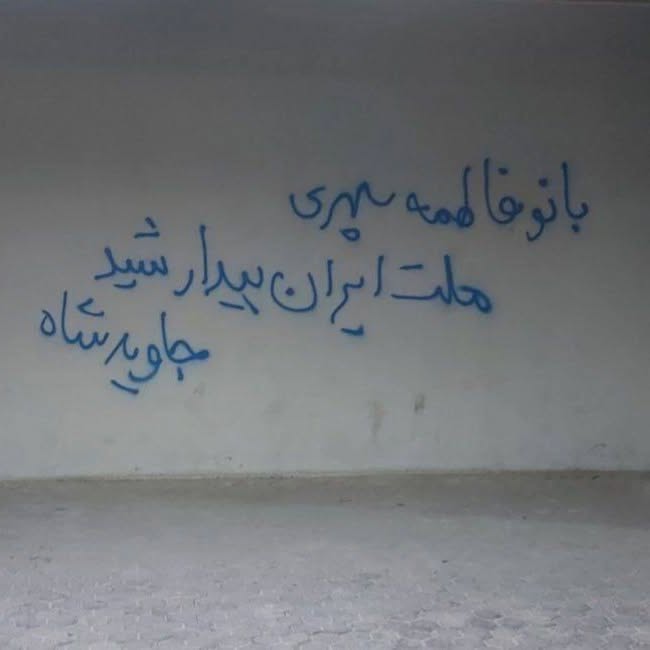 بانو فاطمه سپهری
ملت ایران بیدار شید
جاوید شاه